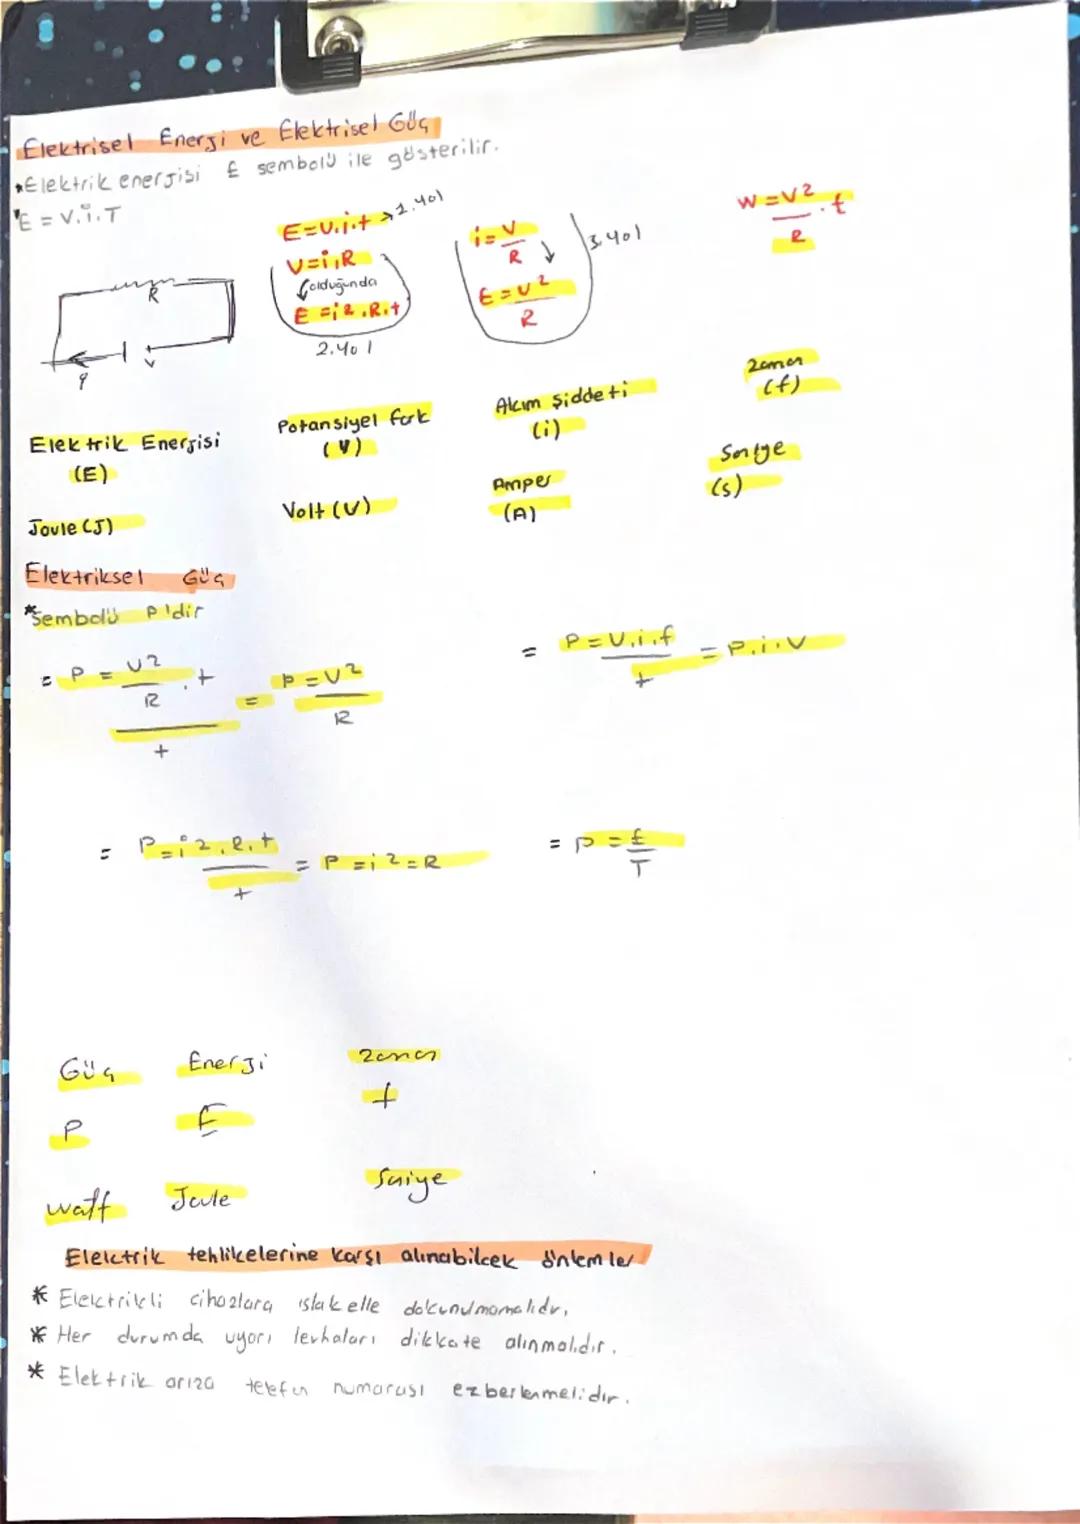 Elektrisel Enerji ve Elektrisel Güç
*Elektrik enerjisi E sembolü ile gösterilir.
*E = V.i.T
E=V.i.t → 1.yol
V=i.R
olduğunda
E =i2.R.t
2.yol
i=V
R
E=V2
R
3.yol
W=V2 . t
R
R
V
q
Elektrik Enerjisi
(E)
Joule (J)
Potansiyel fark
(V)
Volt (V)
Akım şiddeti
(i)
Amper
(A)
Zaman
(t)
Saniye
(s)
Elektriksel Güç
*Sembolü P'dir
= P = V2 . t
R
t
= P = V2
R
= P=V.i.t = P.i.V
t
= P=i2.R.t = P=i2=R
t
= P = E
T
Güç Enerji Zaman
P E t
watt Joule Saniye
Elektrik tehlikelerine karşı alınabilcek önlemler
* Elektrikli cihazlara ıslak elle dokunulmamalıdır.
* Her durumda uyarı levhaları dikkate alınmalıdır.
* Elektrik arıza telefon numarası ezberlenmelidir.